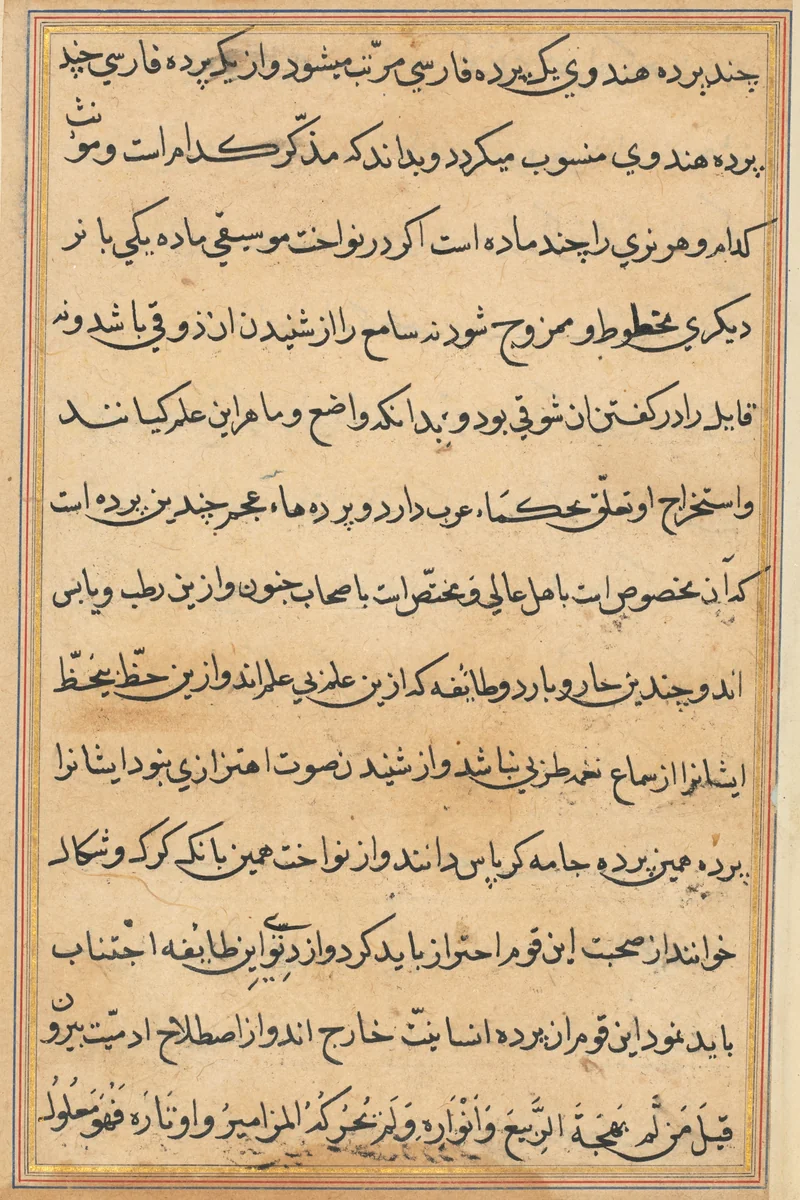 چند پرده هندوی یک پرده فارسی مرتب میشود و از یک پرده فارسی چند
پرده هندوی منسوب میکردد و بداند که مذکّر کدام است و مونث
کدام و هر نری را چند ماده است اکر در نواخت موسیقی ماده یکی با نر
دیکری مخطوط و ممزوج شود نه سامع را از شنیدن ان ذوقی باشد و نه
قایل را در کفتن ان شوقی بود و بدانکه واضع و ماهر این علم کیانند
و استخراج او تعلّق بحکماء عرب دارد و پرده هاء عجم چندین پرده است
که آن مخصوص است باهل عالی و مختصّ است باصحاب جنون و ازین رطب و یابس
اند و چندین حار و بارد و طایفه که ازین علم بی علم اند و ازین حظّ بیحظّ
ایشانرا از سماع نغمه طربی نباشد و از شنیدن صوت اهتزازی نبود ایشانرا
پرده همین پرده جامه کرپاس دانند و از نواخت همین بانک کرک و شکال
خوانند از صحبت این قوم احتراز باید کرد و از این طایفه اجتناب
باید نمود این قوم از پرده انسانیّت خارج اند و از اصطلاح ادمیّت بیرون
قیلَ مَن لَّم بَهجَةَ الرَّبیعَ وَاَنْوَارِه وَلَم یُحَرِّکهُ المزامیرُ و اوتاره فَهُوَ مَعلُولُ